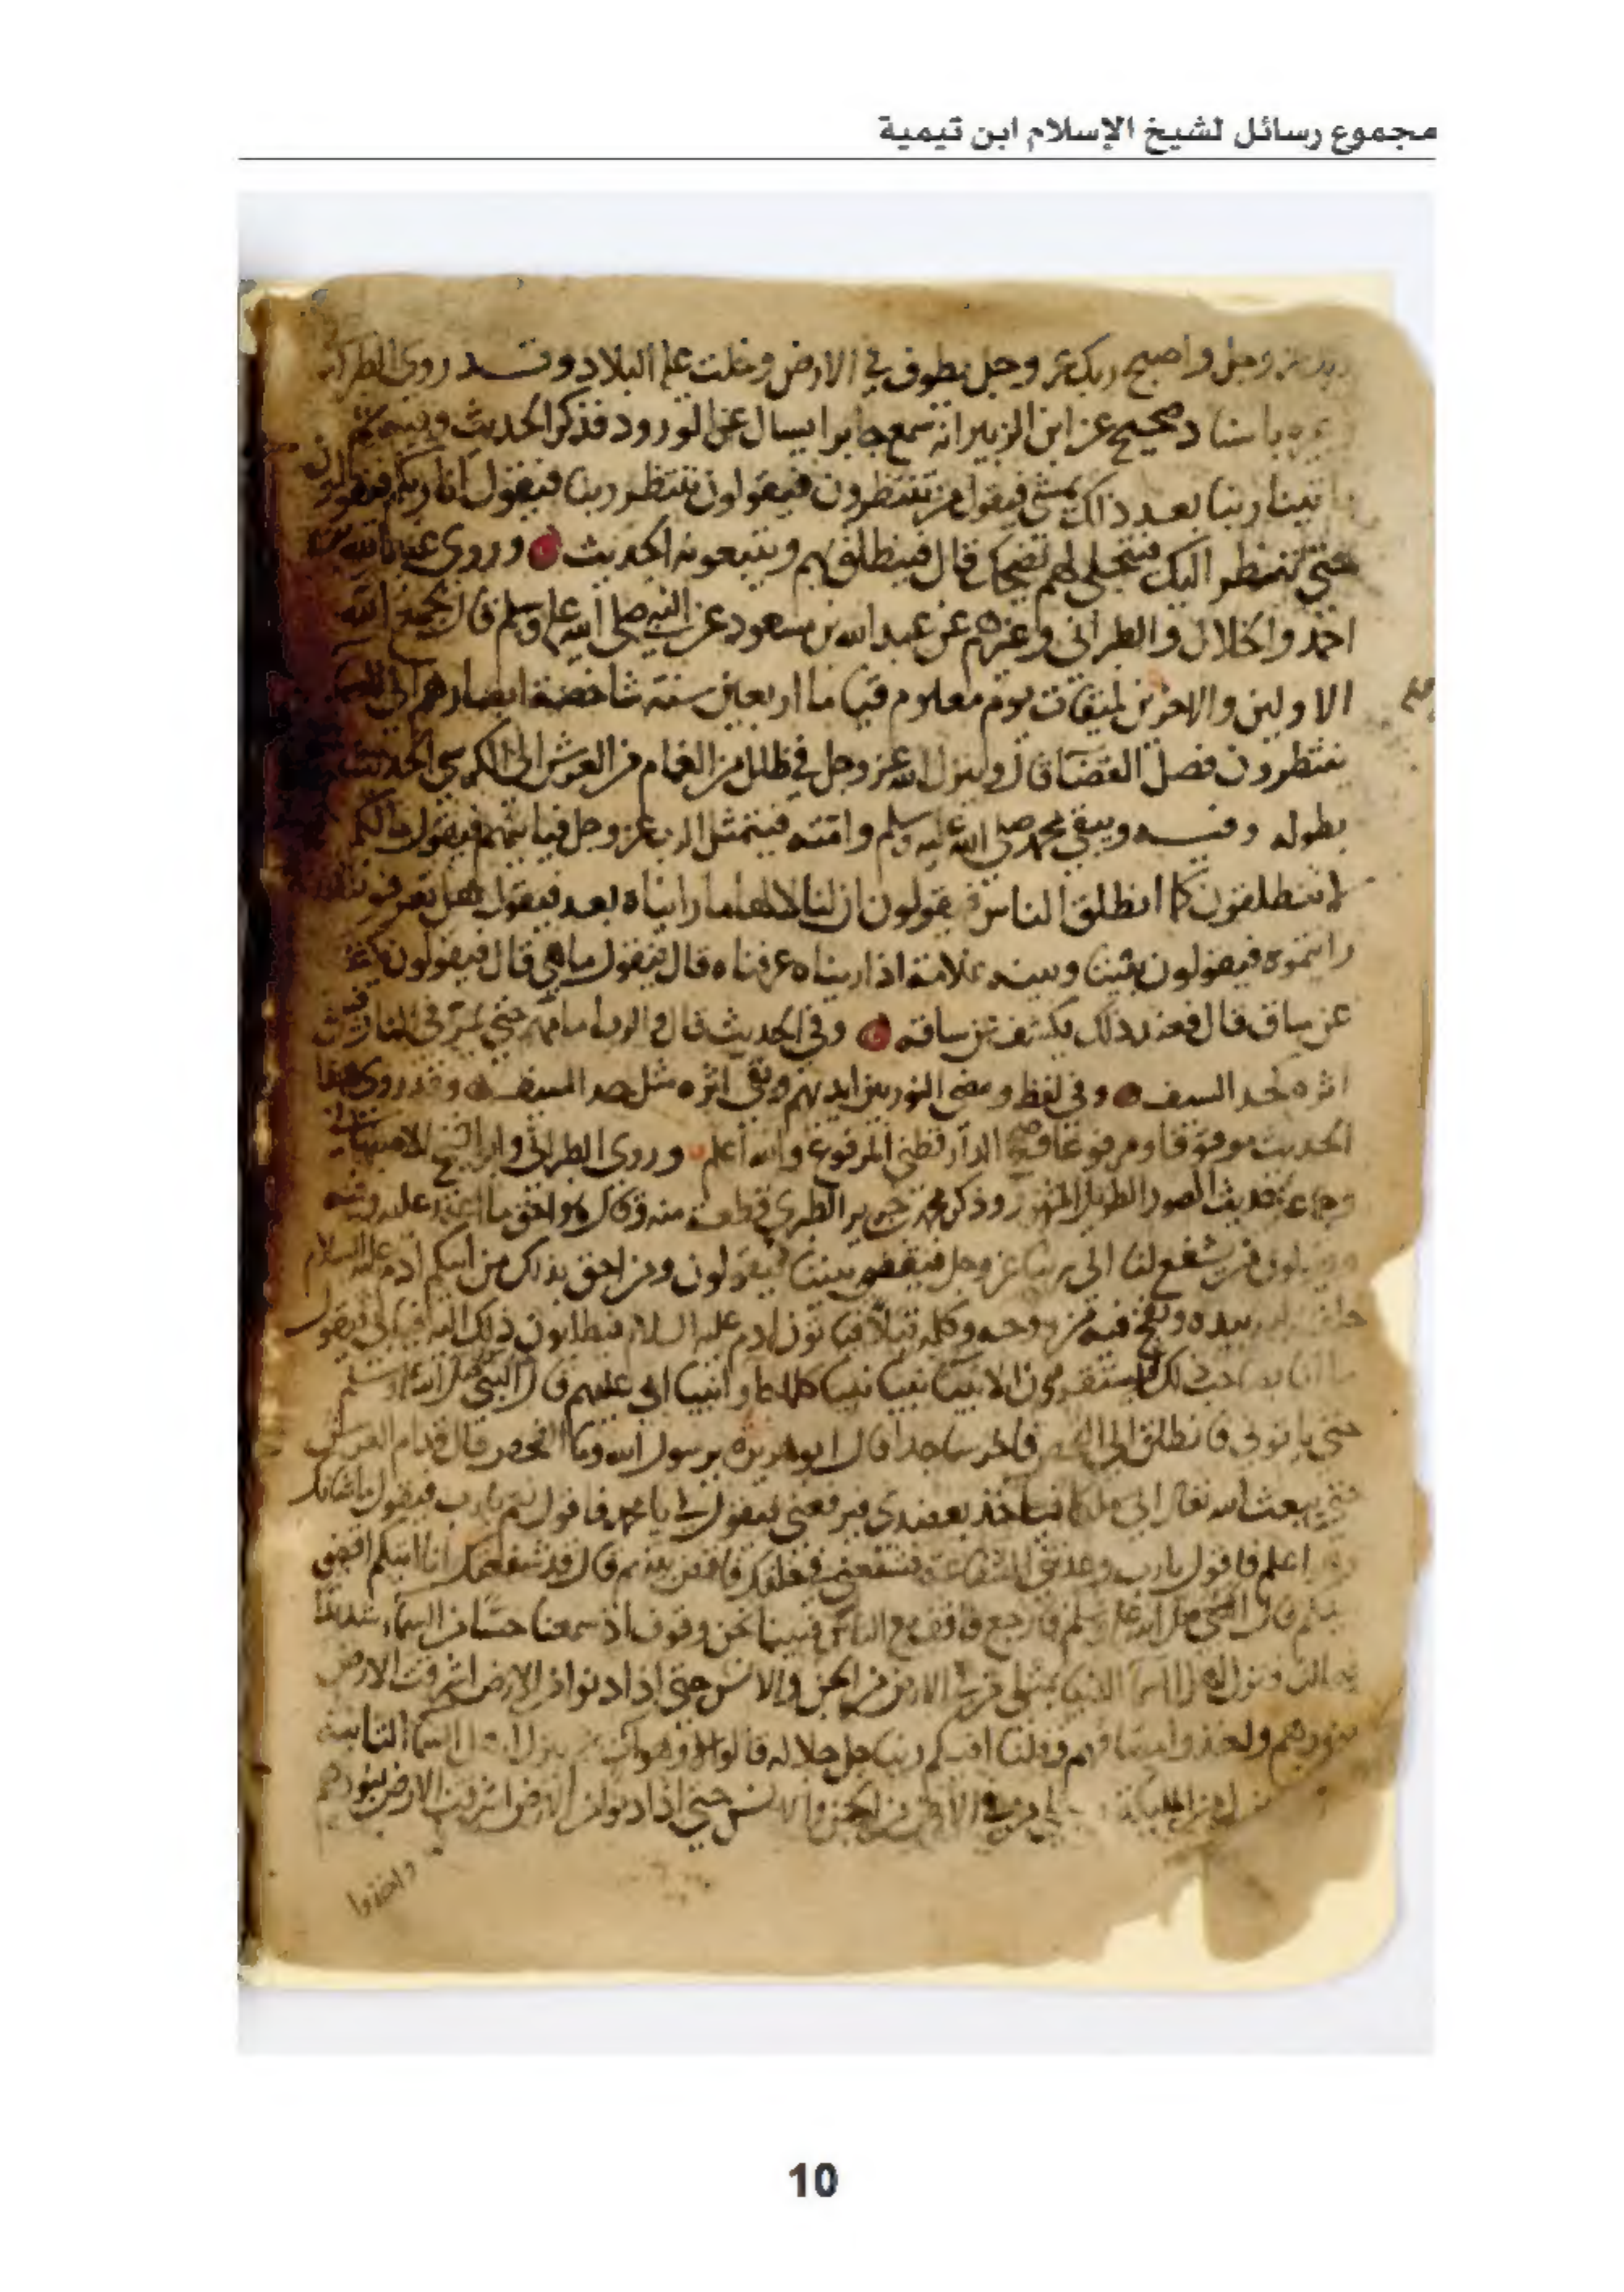 مجموع رسائل لشيخ الإسلام ابن تيمية
عز وجل واصبح ربك عز وجل يطوف في الارض وخلت عليه البلاد وقد روى الطبراني
باسناد صحيح عن ابن الزبير انه سمع جابرا يسال عن الورود فذكر الحديث وفيه ثم
ياتينا ربنا بعد ذلك يمشي فيقول من تنتظرون فيقولون ننتظر ربنا فيقول انا ربكم فيقولون
حتى ننظر اليك فيتجلى لهم يضحك قال فينطلق بهم ويتبعونه الحديث وروى عبد الله بن
احمد والخلال والطبراني وغيرهم عن عبد الله بن مسعود عن النبي صلى الله عليه وسلم قال يجمع الله
الاولين والاخرين لميقات يوم معلوم قياما اربعين سنة شاخصة ابصارهم الى السما
ينتظرون فصل القضا قال وينزل الله عز وجل في ظلل من الغمام من العرش الى الكرسي الحديث
بطوله وفيه ويبقى محمد صلى الله عليه وسلم وامته فيتمثل الرب عز وجل فياتيهم فيقول مالكم
لا تنطلقون كما انطلق الناس فيقولون ان لنا لالها ما رايناه بعد فيقول هل تعرفونه ان
رايتموه فيقولون بيننا وبينه علامة اذا رايناه عرفناه قال فيقول ما هي قال فيقولون يكشف
عن ساق قال فعند ذلك يكشف عن ساقه وفي الحديث قال والرب امامهم حتى يمر في النار فيبقى
اثره كحد السيف وفي لفظ ومضى النور بين ايديهم وبقى اثره مثل حد السيف وقد روى هذا
الحديث موقوفا ومرفوعا وصحح الدارقطني المرفوع والله اعلم وروى الطبراني وابو الشيخ الاصبهاني
حديث الصور الطويل المشهور وذكر محمد بن جرير الطبري قطعة منه وقال
فيقولون من يشفع لنا الى ربنا عز وجل فيقضي بيننا فيقولون ومن احق بذلك من ابيكم ادم عليه السلام
خلقه الله بيده ونفخ فيه من روحه وكلمه قبلا فياتون ادم عليه السلام فيطلبون ذلك اليه فيابى فيقول
ما انا بصاحب ذلك فيستقرون الانبيا نبيا نبيا كلما جاوا نبيا ابى عليهم قال النبي صلى الله عليه وسلم
حتى ياتوني فانطلق الى الفحص فاخر ساجدا قال ابو هريرة يرسول الله وما الفحص قال قدام العرش
حتى يبعث الله تعالى الي ملكا فياخذ بعضدي فيرفعني فيقول لي يا محمد فاقول نعم يارب فيقول ما شانك
اعلم فاقول يارب وعدتني الشفاعة فشفعني في خلقك فاقض بينهم قال قد شفعتك انا اتيكم اقضي
بينكم قال النبي صلى الله عليه وسلم فارجع فاقف مع الناس فبينما نحن وقوف اذ سمعنا حسا من السما شديدا
فينزل اهل السما الدنيا بمثلي من في الارض من الجن والانس حتى اذا دنوا من الارض اشرقت الارض
بنورهم واخذوا مصافهم وقلنا افيكم ربنا جل جلاله قالوا لا وهو ات ثم ينزل اهل السما الثانية
من الملائكة بمثلي من في الارض من الجن والانس حتى اذا دنوا من الارض اشرقت الارض بنورهم
واخذوا
10